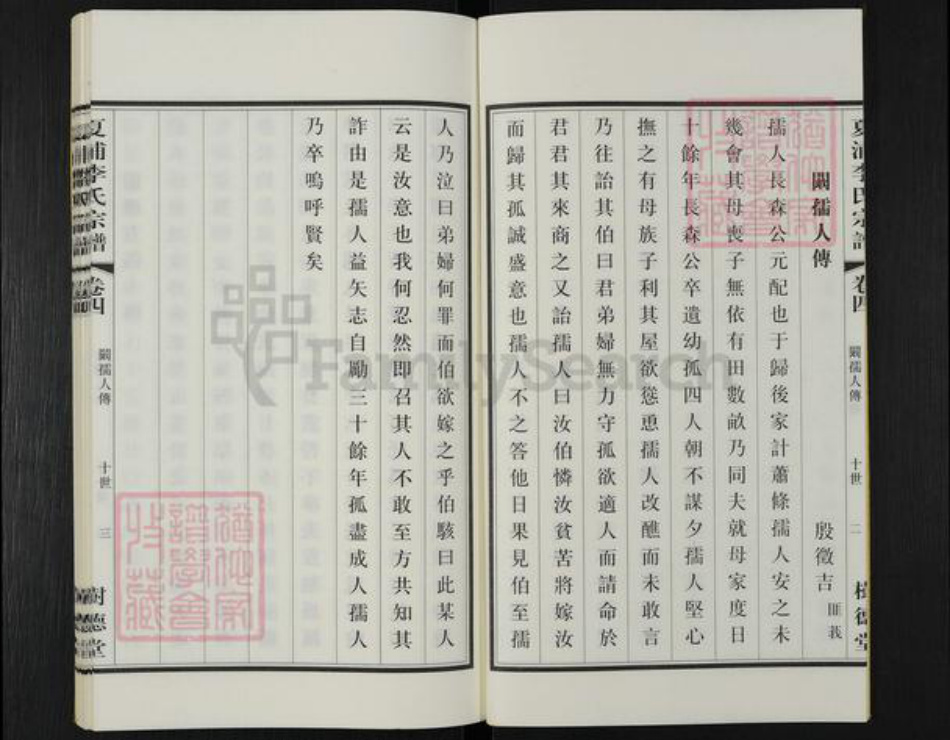 夏浦李氏宗譜 卷四 闞孺人傳 十世 二 樹德堂
闞孺人傳
殷徵吉
孺人長森公元配也于歸後家計蕭條孺人安之未
幾會其母喪子無依有田數畝乃同夫就母家度日
十餘年長森公卒遺幼孤四人朝不謀夕孺人堅心
撫之有母族子利其屋欲慫恿孺人改醮而未敢言
乃往詒其伯曰君弟婦無力守孤欲適人而請命於
君君其來商之又詒孺人曰汝伯憐汝貧苦將嫁汝
而歸其孤誠盛意也孺人不之答他日果見伯至孺
人乃泣曰弟婦何罪而伯欲嫁之乎伯駭曰此某人
云是汝意也我何忍然即召其人不敢至方共知其
詐由是孺人益矢志自勵三十餘年孤盡成人孺人
乃卒嗚呼賢矣
夏浦李氏宗譜 卷四 闞孺人傳 十世 三 樹德堂
FamilySearch